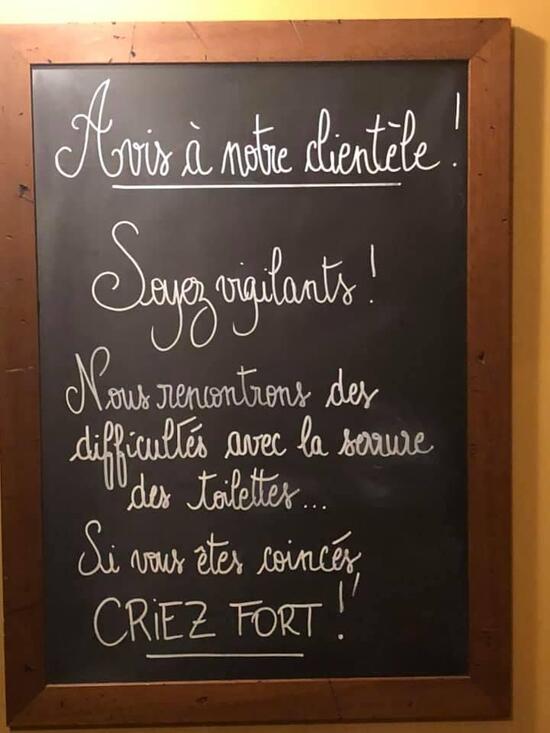 Avis à notre clientèle !
Soyez vigilants !
Nous rencontrons des
difficultés avec la serrure
des toilettes...
Si vous êtes coincés,
CRIEZ FORT !!